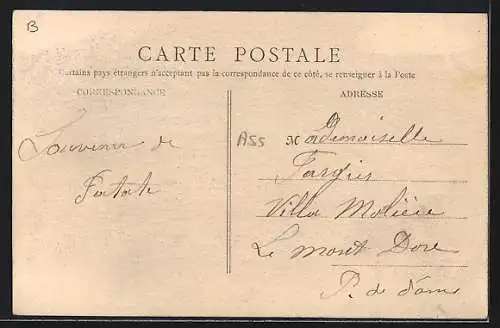 B
CARTE POSTALE
Certains pays étrangers n'acceptant pas la correspondance de ce côté, se renseigner à la Poste
CORRESPONDANCE
ADRESSE
Souvenir de
A55
Mademoiselle
Villa Molière
Le Mont Dore
P. de dome